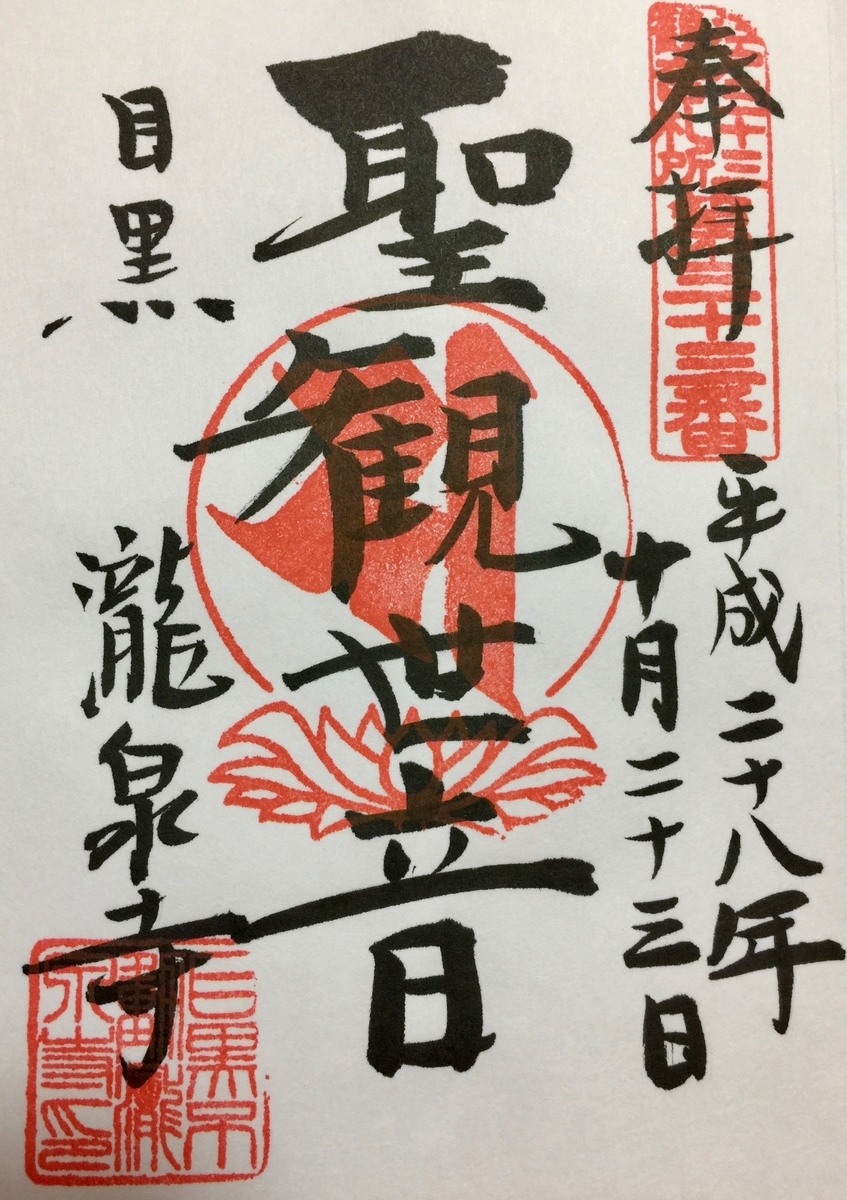 奉拝
三十三
札所
第三十三番
平成二十八年
十月二十三日
聖観世音
目黒
瀧泉寺